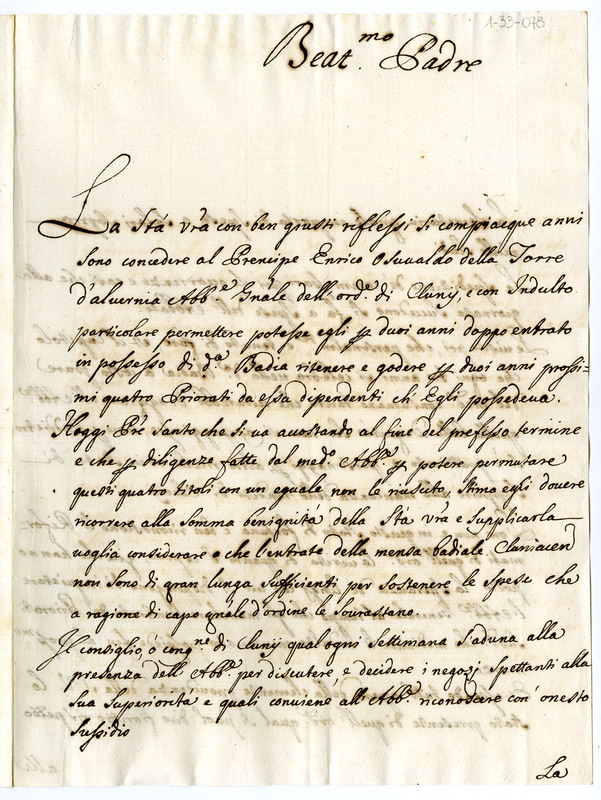 1-33-078
Beat.mo Padre
La Stà vrà con ben giusti riflessi si compiacque anni
sono concedere al Prencipe Enrico Osuualdo della Torre
d'aluernia Abb.e Gnãle dell'ord.e di Cluny, e con Indulto
particolare permettere potesse egli p duoi anni doppo entrato
in possesso di d.a Badia ritenere e godere p duoi anni prossi=
mi quatro Priorati da essa dipendenti ch'Egli possedeua.
Hoggi Prẽ Santo che si ua accostando al fine del prefisso termine
e che p diligenze fatte dal med.o Abb.e p potere permutare
questi quatro titoli con un eguale non le riuscito, stima egli douere
ricorrere alla somma benignità della Stà vrà e supplicarla
uoglia considerare che l'entrate della mensa badiale
non sono di gran lunga sufficienti per sostenere le spese che
a ragione di capo gnãle d'ordine le sourastano.
Il consiglio, ò cong.ne di Cluny qual ogni settimana s'aduna alla
presenza dell'Abb.e per discutere, e decidere i negozj spettanti alla
sua superiorità e quali conuiene all'Abb.e riconoscere con onesto
sussidio
La